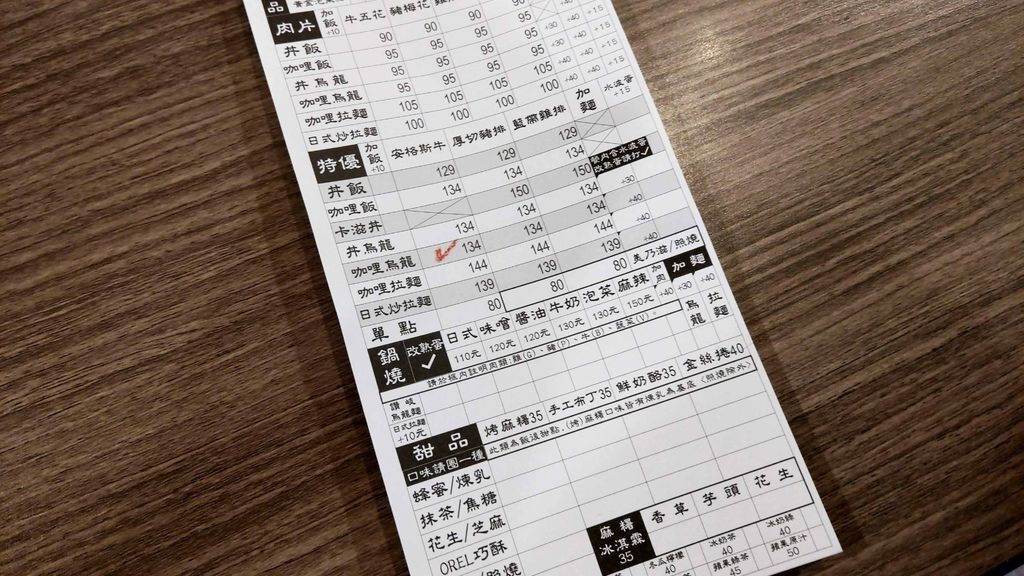 品
肉片 加飯+10 牛五花 豬梅花
丼飯 90 90 90
咖哩飯 95 95 95
丼烏龍 95 95 95 +30 +15
咖哩烏龍 95 95 95 +40 +15
咖哩拉麵 105 105 105 +40 +15
日式炒拉麵 100 100 100 +40 +15
特優 加飯+10 安格斯牛 厚切豬排 藍帶雞排 加麵 水波蛋+15
丼飯 129 129 129
咖哩飯 134 134 134
卡滋丼 150 150 餐內含水波蛋 改熟蛋請打✓
丼烏龍 134 134 134 +30
咖哩烏龍 ✓ 134 134 134 +40
咖哩拉麵 144 144 139 +40
日式炒拉麵 139 139 +40
單點 80 80 80 美乃滋/照燒
鍋燒 改熟蛋✓ 日式 味噌 醬油 牛奶 泡菜 麻辣 加肉 加麵
110元 120元 120元 130元 130元 150元 +40 +30 +40
請於框內註明肉類:雞(G)、豬(P)、牛(B)、蔬菜(V)。 烏龍 拉麵
讚岐烏龍麵
日式拉麵+10元
甜品 烤麻糬35 手工布丁35 鮮奶酪35 金絲捲40
口味請圈一種 此類為飯後甜點，(烤)麻糬口味皆有煉乳為基底(照燒除外)
蜂蜜/煉乳
抹茶/焦糖
花生/芝麻
OREL巧酥
麻糬冰淇淋35 香草 芋頭 花生
冬瓜檸檬 40 冰奶茶 40 冰奶綠 40
蘋果綠茶 45 蘋果原汁 50